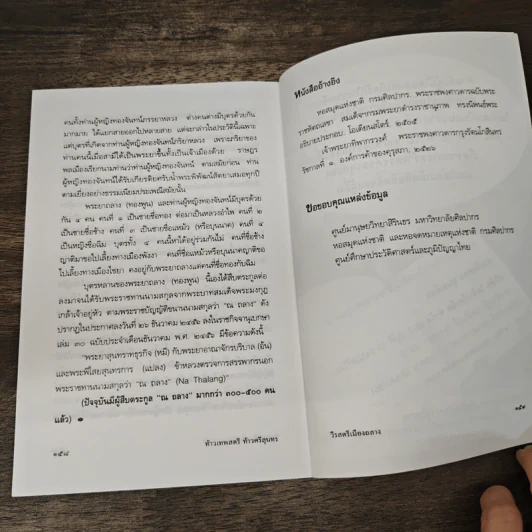 คนทั้งท่านผู้หญิงทองจันทน์ภรรยาหลวง ต่างคนต่างมีบุตรด้วยกัน
มากมาย ได้แยกสายออกไปหลายสาย แต่จะกล่าวในประวัตินี้เฉพาะ
แต่บุตรที่เกิดจากท่านผู้หญิงทองจันทน์ภรรยาหลวง เพราะภริยาของ
ท่านคนนี้เมื่อสามีได้เป็นพระยาขึ้นทั้งเป็นเจ้าเมืองด้วย ราษฎร
พลเมืองเรียกนามท่านว่าท่านผู้หญิงทองจันทน์ ตามสมัยก่อน ท่าน
ผู้หญิงทองจันทน์ได้รับเกียรติยศรับน้ำพระพิพัฒน์สัตยาเสมอทุกปี
ตามเยี่ยงอย่างธรรมเนียมประเพณีสมัยนั้น
พระยาถลาง (ทองพูน) และท่านผู้หญิงทองจันทน์มีบุตรด้วย
กัน ๔ คน คนที่ ๑ เป็นชายชื่อทอง ต่อมาเป็นหลวงอำไพ คนที่ ๒
เป็นชายชื่อช้าง คนที่ ๓ เป็นชายชื่อแหม้ว (หรือบุนนาค) คนที่ ๔
เป็นหญิงชื่อฉิม บุตรทั้ง ๔ คนนี้หาได้อยู่ร่วมกันไม่ คนที่ชื่อช้าง
ญาติมาขอไปเลี้ยงทางเมืองพังงา คนที่ชื่อแหม้วหรือบุนนาคญาติขอ
ไปเลี้ยงทางเมืองไชยา คงอยู่กับพระยาถลางแต่คนที่ชื่อทองกับฉิม
บุตรหลานของพระยาถลาง (ทองพูน) นี้เองได้สืบตระกูลต่อ
ลงมาจนได้รับพระราชทานนามสกุลจากพระบาทสมเด็จพระมงกุฎ
เกล้าเจ้าอยู่หัว ตามพระราชบัญญัติขนานนามสกุลว่า “ณ ถลาง” ดัง
ปรากฏในประกาศลงวันที่ ๒๖ ธันวาคม ๒๔๕๖ ลงในราชกิจจานุเบกษา
เล่ม ๓๐ ฉบับประจำเดือนธันวาคม พ.ศ. ๒๔๕๖ มีข้อความดังนี้
“พระยาสุนทราทรธุรกิจ (หมี) กับพระยาอาณาจักรบริบาล (อ้น)
และพระพิไสยสุนทรการ (แปลง) ข้าหลวงตรวจการสรรพากรนอก
พระราชทานนามสกุลว่า “ณ ถลาง” (Na Thalang)”
(ปัจจุบันมีผู้สืบตระกูล “ณ ถลาง” มากกว่า ๓๐๐-๕๐๐ คน
แล้ว)
๑๕๘
ท้าวเทพสตรี ท้าวศรีสุนทร
หนังสืออ้างอิง
หอสมุดแห่งชาติ กรมศิลปากร. พระราชพงศาวดารฉบับพระ
ราชหัตถเลขา สมเด็จกรมพระยาดำรงราชานุภาพ ทรงนิพนธ์พระ
อธิบายประกอบ. โอเดียนสโตร์. ๒๕๐๕
เจ้าพระยาทิพากรวงศ์ พระราชพงศาวดารกรุงรัตนโกสินทร์
รัชกาลที่ ๑. องค์การค้าของคุรุสภา. ๒๕๒๖
ขอขอบคุณแหล่งข้อมูล
ศูนย์มานุษยวิทยาสิรินธร มหาวิทยาลัยศิลปากร
หอสมุดแห่งชาติ และหอจดหมายเหตุแห่งชาติ กรมศิลปากร
ศูนย์ศึกษาประวัติศาสตร์และภูมิปัญญาไทย
วีรสตรีเมืองถลาง
๑๕๙